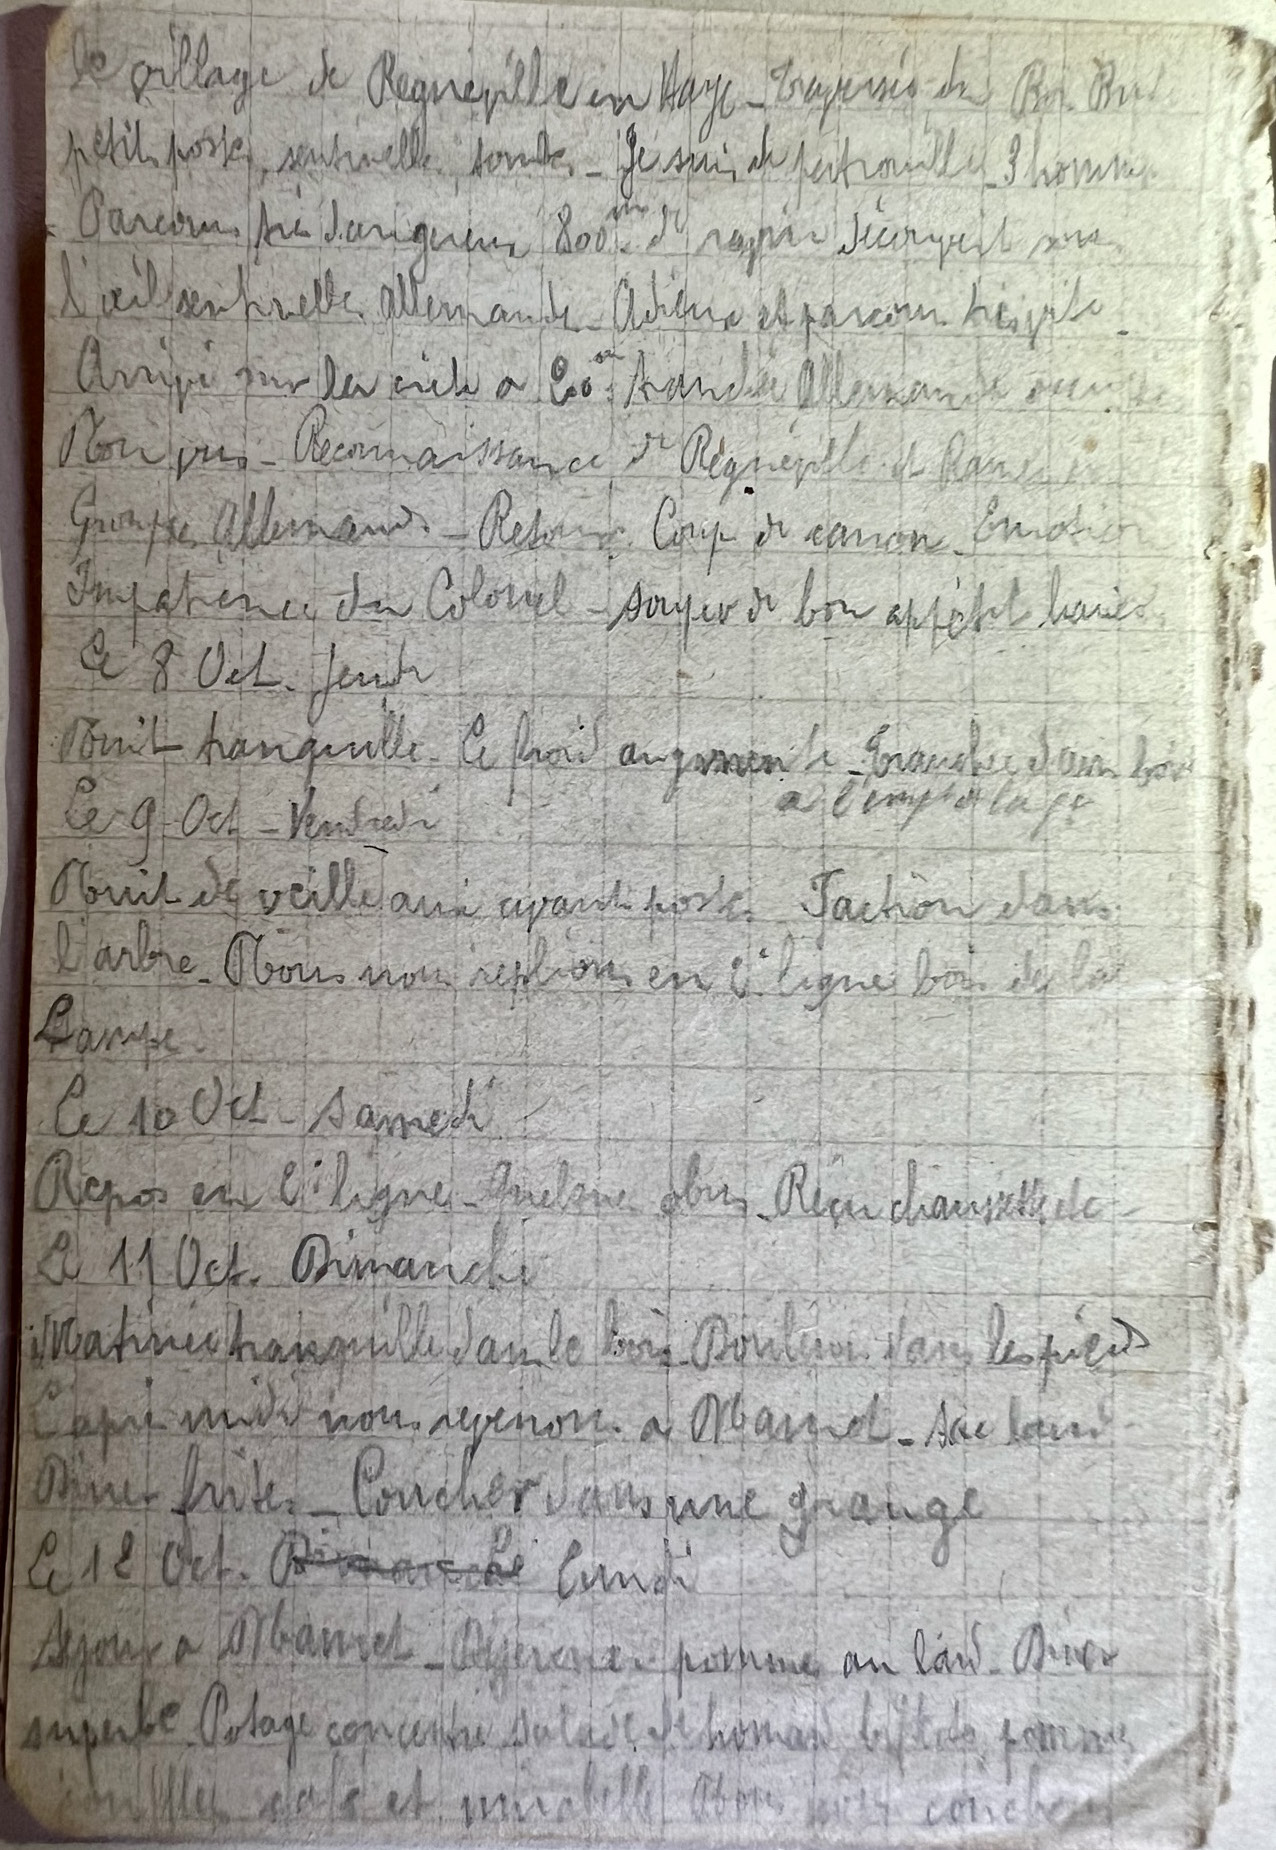 le village de Regnéville en Haye - traversée du Bois Brulé
petits postes, sentinelles, tombes - Je suis de patrouille 3 hommes
Parcours très dangereux 800m de découvert sous
l'œil sentinelle Allemande - Adieux et parcours très vite -
Arrivé sur la crête a tranchée Allemande
Non vus - Reconnaissance de Régnéville et
Groupes Allemands - Retour. Coup de canon - Emotion
Impatience du Colonel - souper de bon appétit
Le 8 Oct. Jeudi
Nuit tranquille - Le froid augmente - Tranchée dans bois
a l'
Le 9 Oct - Vendredi
Nuit de veille aux avant postes Faction dans
l'arbre - Nous nous replions en 2e ligne bois de la
Lampe
Le 10 Oct - Samedi
Repos en 2e ligne - quelques obus - Reçu chaussettes etc -
Le 11 Oct. Dimanche
Matinée tranquille dans le bois - Douleurs dans les pieds
L'après midi nous revenons a Mamet - Sac lourd -
Diner frites - Coucher dans une grange
Le 12 Oct. Dimanche lundi
Séjour a Mamet - Déjeuner pommes au lard - Diner
superbe Potage concentré salade de homard bifteck pommes
café et mirabelle Nous